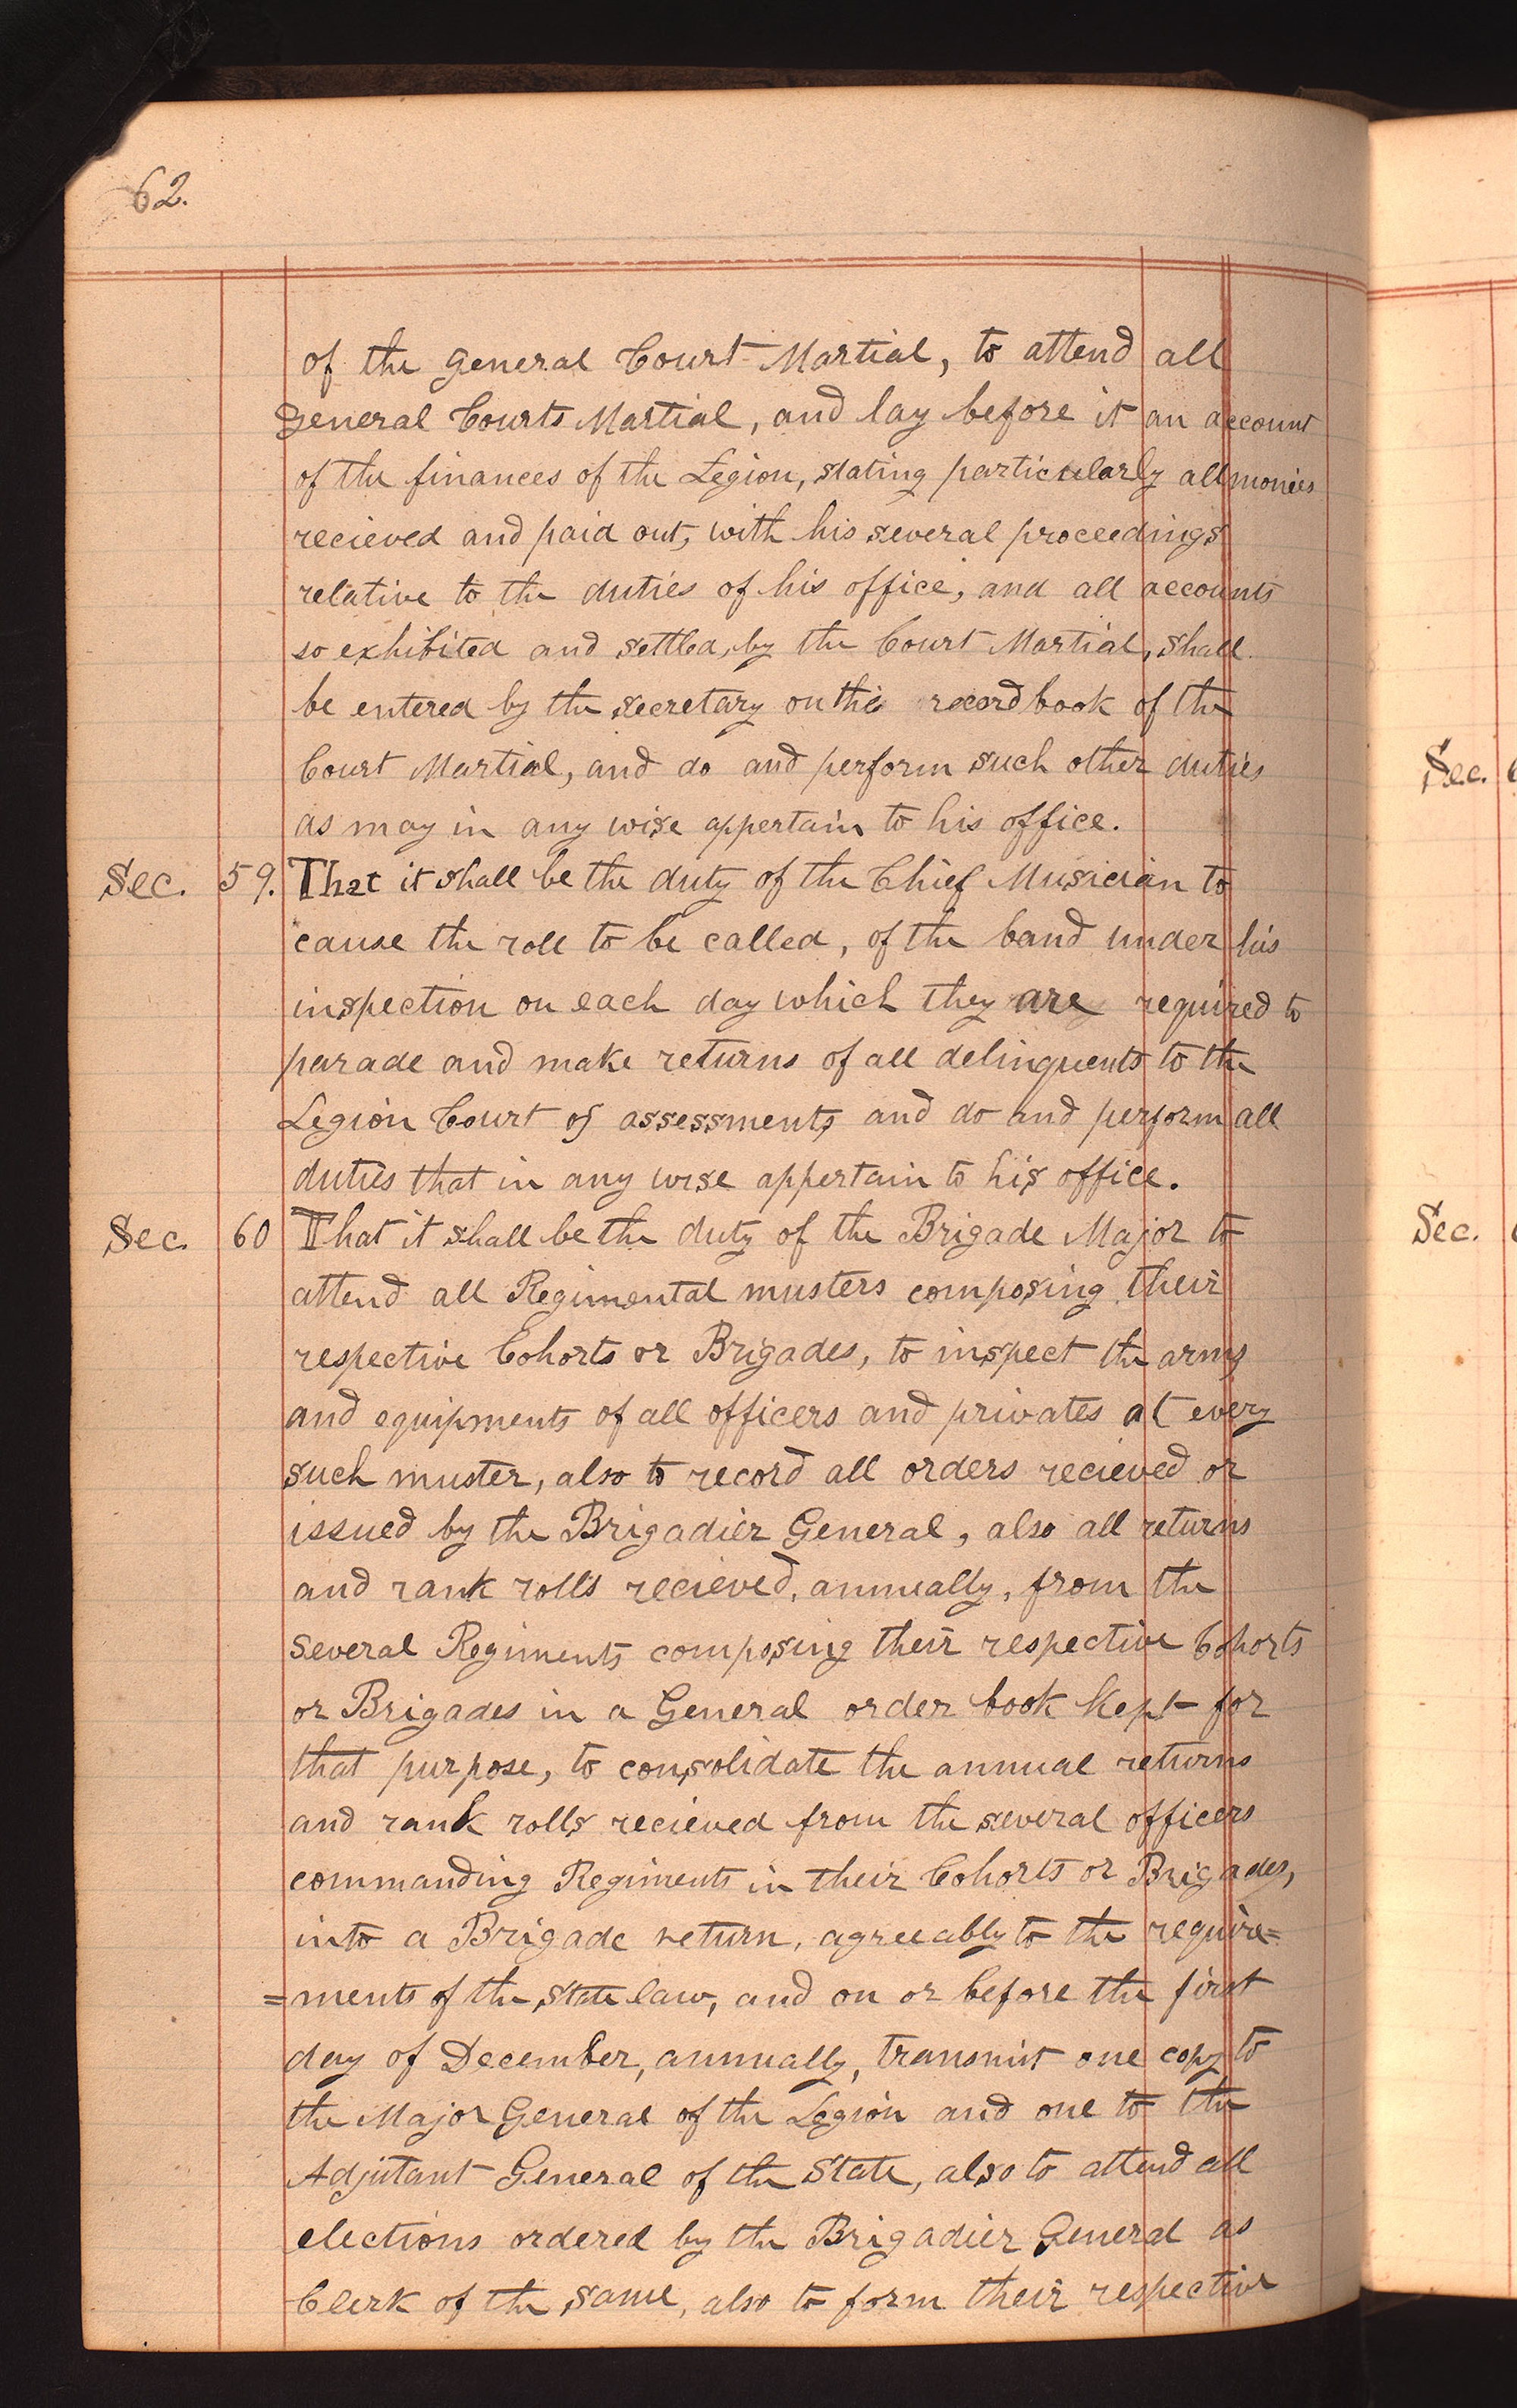 62.
of the general Court Martial, to attend all
General Courts Martial, and lay before it an account
of the finances of the Legion, stating particularly all monies
recieved and paid out, with his several proceedings
relative to the duties of his office, and all accounts
so exhibited and settled, by the Court Martial, shall
be entered by the secretary on the record book of the
Court Martial, and do and perform such other duties
as may in any wise appertain to his office.
Sec. 59. That it shall be the duty of the Chief Musician to
cause the roll to be called, of the band under his
inspection on each day which they are required to
parade and make returns of all delinquents to the
Legion Court of assessments and do and perform all
duties that in any wise appertain to his office.
Sec. 60 That it shall be the duty of the Brigade Major to
attend all Regimental musters composing their
respective Cohorts or Brigades, to inspect the arms
and equipments of all officers and privates at every
such muster, also to record all orders recieved or
issued by the Brigadier General, also all returns
and rank rolls recieved, annually, from the
several Regiments composing their respective Cohorts
or Brigades in a General order book kept for
that purpose, to consolidate the annual returns
and rank rolls recieved from the several officers
commanding Regiments in their Cohorts or Brigades,
into a Brigade return, agreeably to the require=
=ments of the State law, and on or before the first
day of December, annually, transmit one copy to
the Major General of the Legion and one to the
Adjutant General of the State, also to attend all
elections ordered by the Brigadier General as
Clerk of the same, also to form their respective
Sec.
Sec.